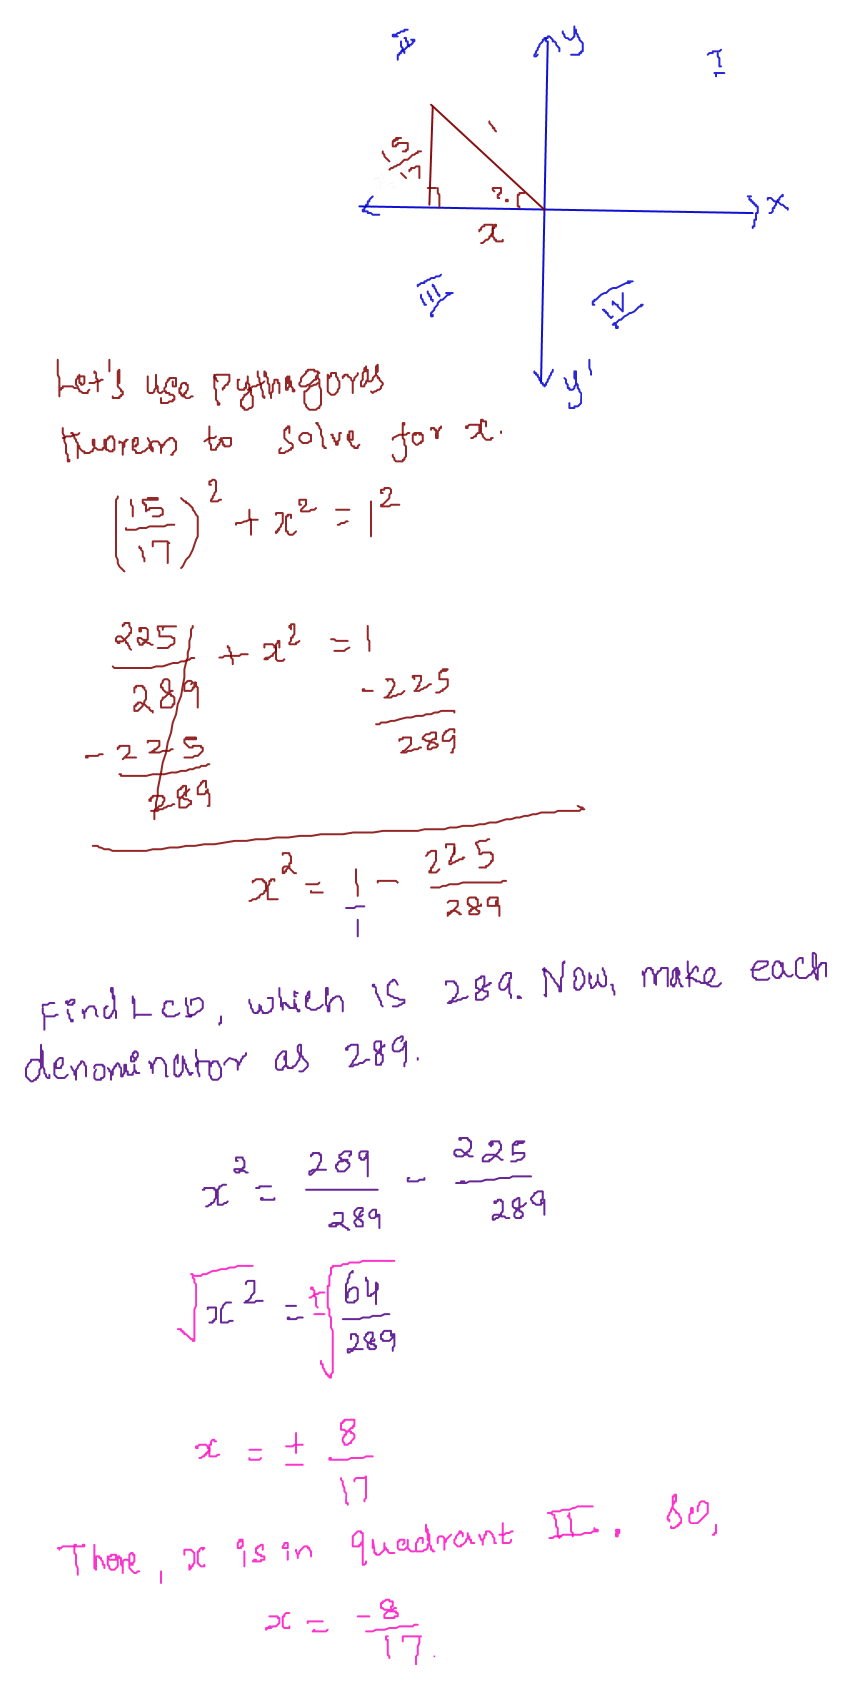 II
y
I
15/17
1
?
x
x
III
IV
y'
Let's use Pythagoras
theorem to solve for x.
(15/17)² + x² = 1²
225/289 + x² = 1
-225/289 -225/289
x² = 1/1 - 225/289
Find LCD, which is 289. Now, make each
denominator as 289.
x² = 289/289 - 225/289
√x² = ±√64/289
x = ± 8/17
There, x is in quadrant II. So,
x = -8/17.